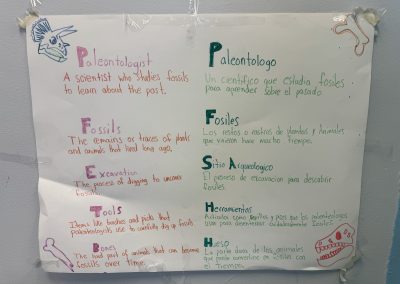 Paleontologist
A scientist who studies fossils
to learn about the past.
Fossils
The remains or traces of plants
and animals that lived long ago.
Excavation
The process of digging to uncover
fossils.
Tools
Items like brushes and picks that
paleontologists use to carefully dig up fossils
Bones
The hard part of animals that can become
fossils over time.
Paleontologo
Un cientifico que estudia fosiles
para aprender sobre el pasado.
Fosiles
Los restos o rastros de plantas y animales
que vivieron hace mucho tiempo.
Sitio Arqueologico
El proceso de excavacion para descubrir
fosiles.
Herramientas
como cepillos y picos que los paleontologos
usan para desenterrar cuidadosamente fosiles.
Hueso
La parte dura de los animales
que puede convertirse en fosiles con
el tiempo.